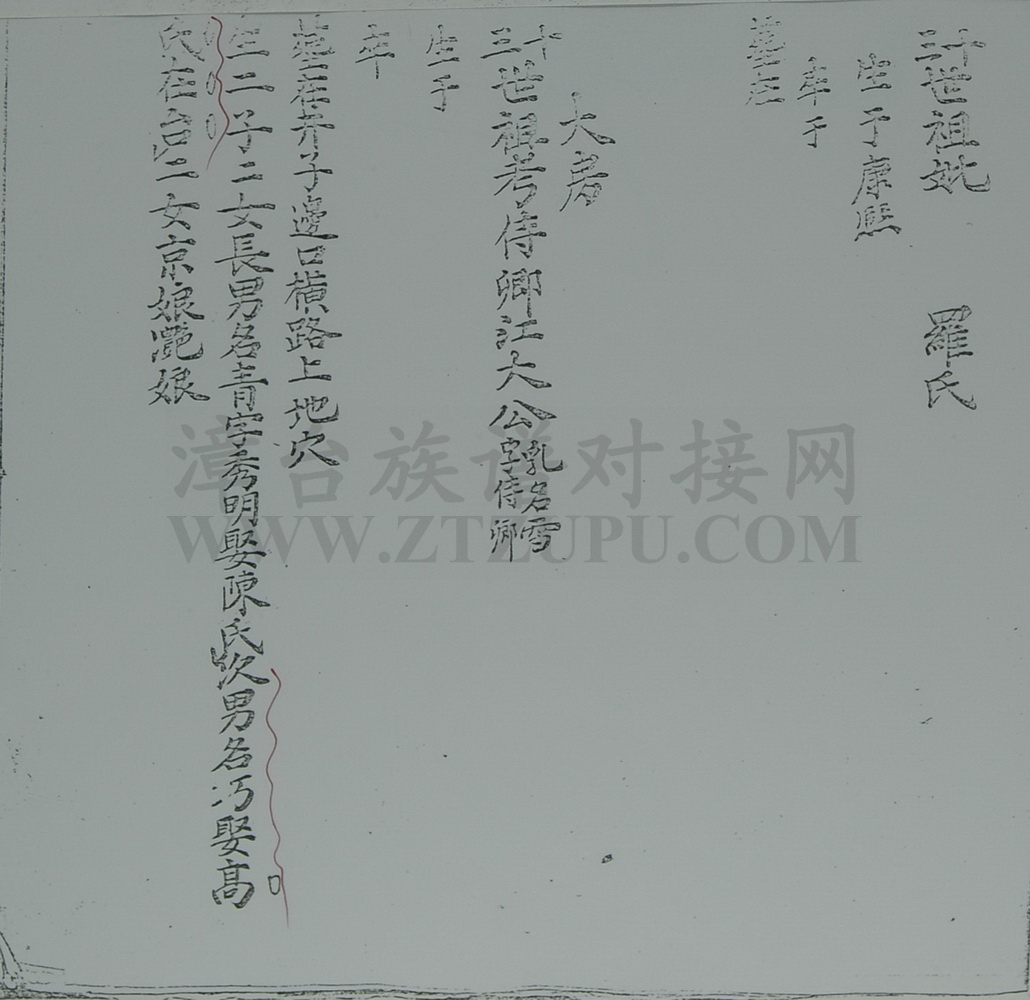 三十世祖妣 羅氏
生于康熙
卒于
墓在
大房
三十世祖考侍卿江大公乳名雪字侍卿
生于
卒
墓在井子邊口橫路上地穴
生二子二女長男名青字秀明娶陳氏次男名巧娶高
氏在台二女京娘艷娘
漳台族谱对接网
WWW.ZTZUPU.COM